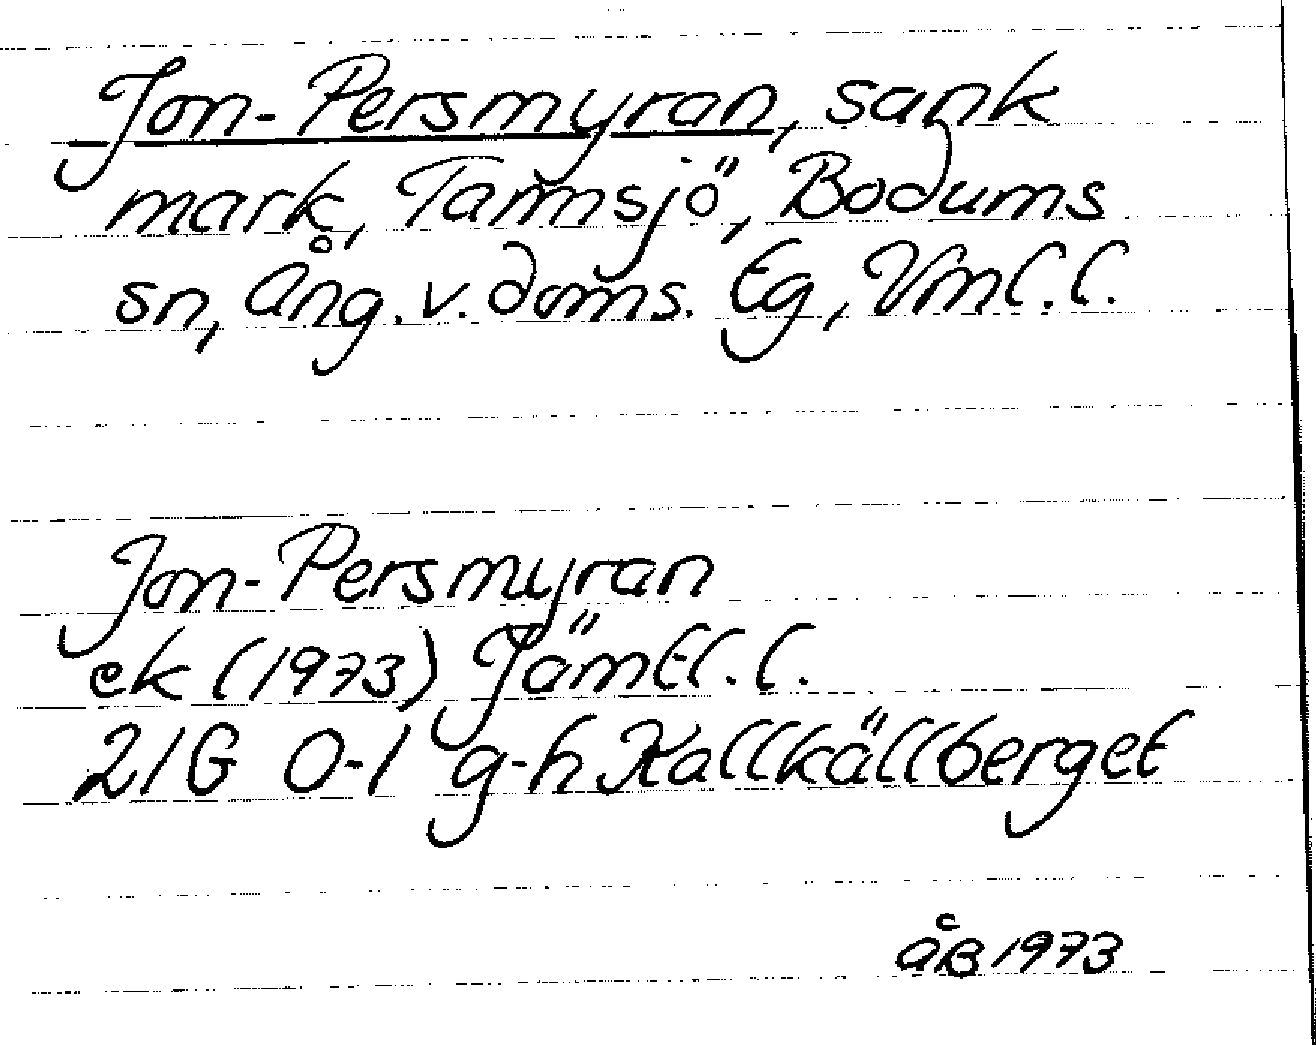 Jon-Persmyran, sank
mark, Tarmsjö, Bodums
sn, Ång. v. doms. Eg, Vml. l.
Jon-Persmyran
ek (1973) Jämtl. l.
21G 0-1 g-h Kallkällberget
åB 1973